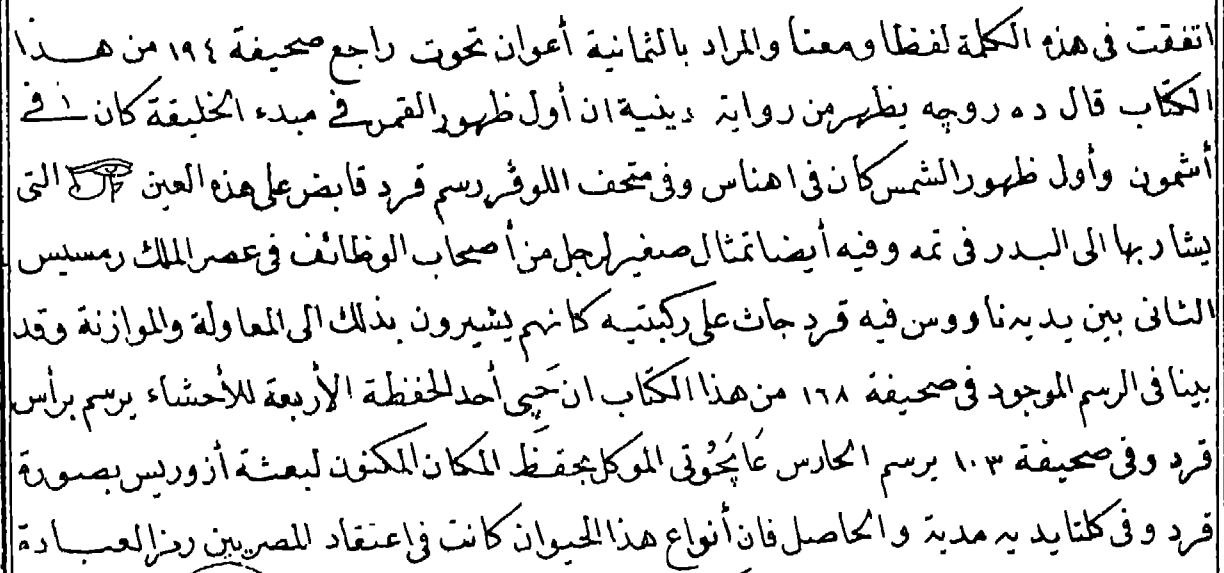 اتفقت فى هذه الكلمة لفظا ومعنا والمراد بالثمانية أعوان تحوت راجع صحيفة ١٩٤ من هـذا
الكتاب قال ده روچه يظهر من رواية دينية ان أول ظهور القمر فى مبدء الخليقة كان فى
أشمون وأول ظهور الشمس كان فى اهناس وفى متحف اللوڤر رسم قرد قابض على هذه العين 𓂀 التى
يشار بها الى البـدر فى تمه وفيه أيضا تمثال صغير لرجل من أصحاب الوظائف فى عصر الملك رمسيس
الثانى بين يـديه ناووس فيه قرد جاث على ركبتيـه كانهم يشيرون بذلك الى المعاولة والموازنة وقد
بينا فى الرسم الموجود فى صحيفة ١٦٨ من هذا الكتاب ان حَپى أحد الحفظة الأربعة للأحشاء يرسم برأس
قرد وفى صحيفة ١٠٣ يرسم الحارس الموكل بحفـظ المكان المكنون لبعثـة أزوريس بصـورة
قرد وفى كلتا يديه مدية والحاصل فان أنواع هذا الحيوان كانت فى اعتقاد المصريين رمز العبـادة